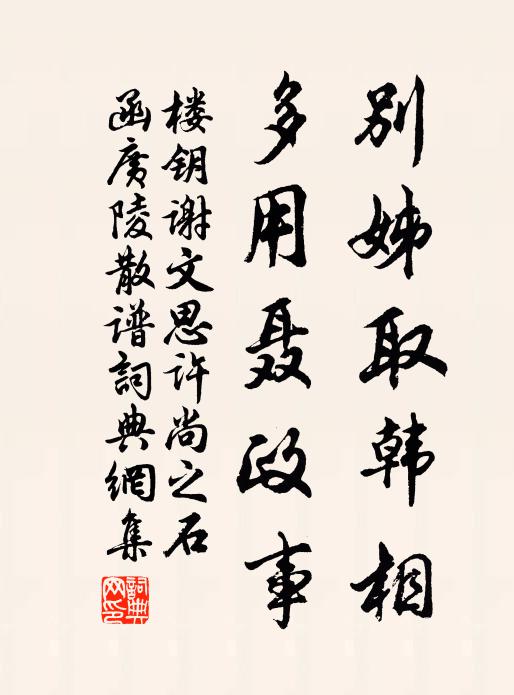 别姊取韩相
多用聂政事
楼钥谢文思许尚之石
函广陵散谱詞典網集
詞典網印